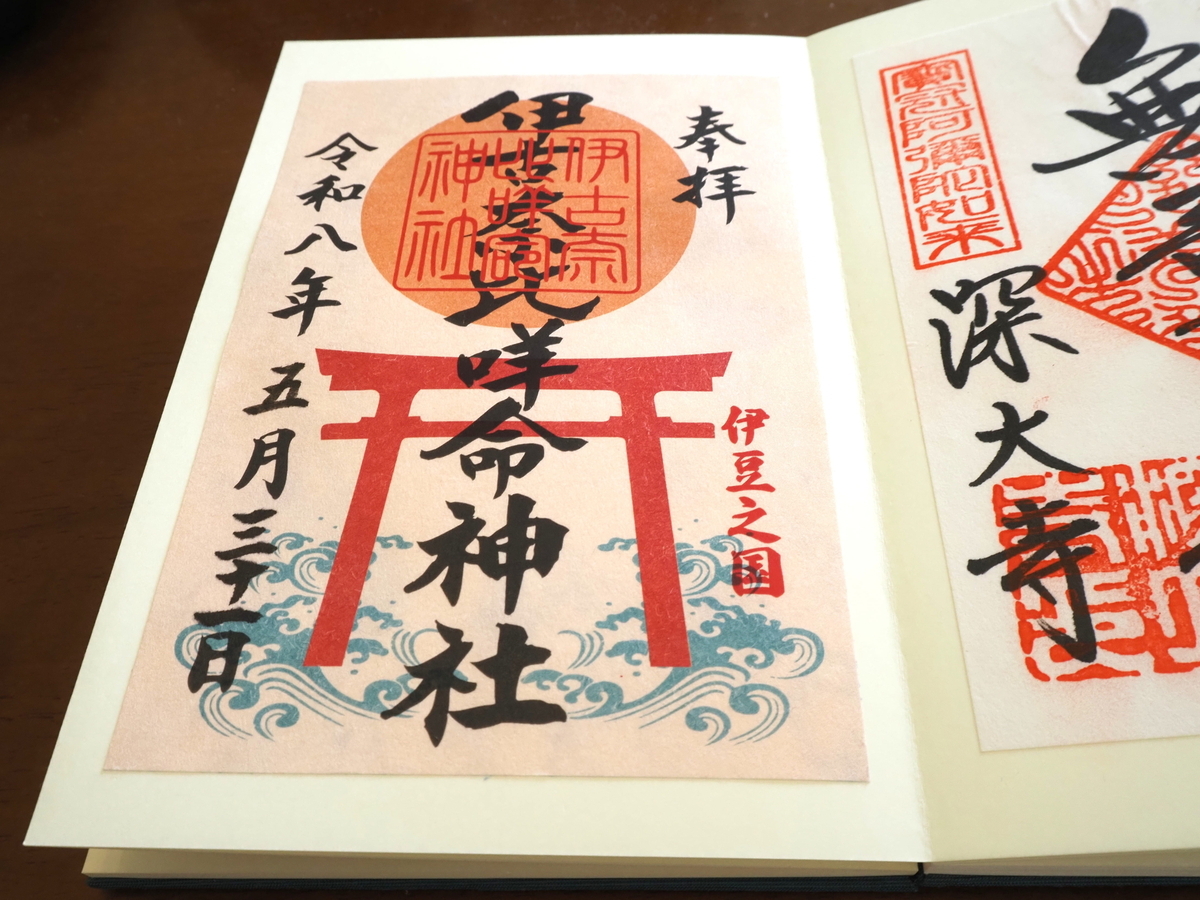 無
寶冠阿彌陀如来
深大寺
奉拝
伊豆之国
伊古奈比咩命神社
伊古奈
比咩命
神社
令和八年五月三十一日